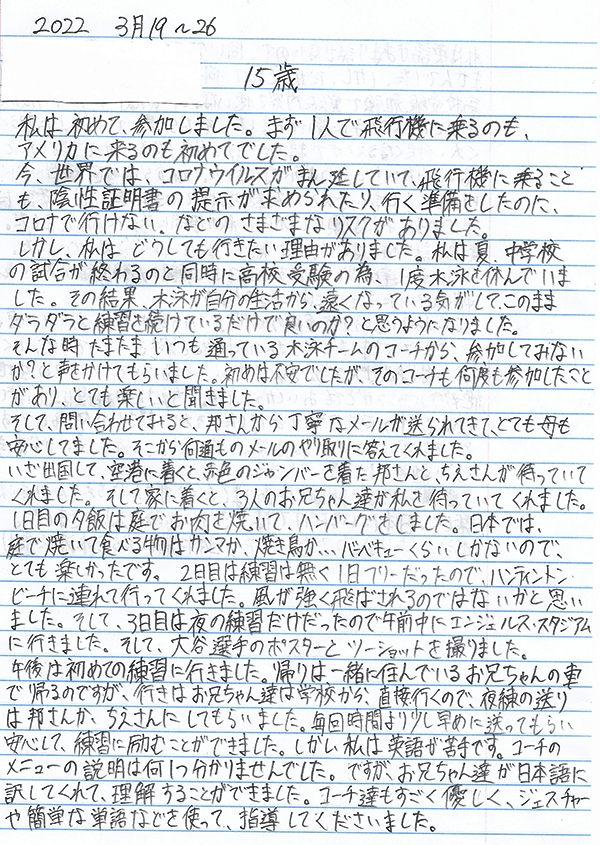 2022 3月19〜26
15歳
私は初めて、参加しました。まず1人で飛行機に乗るのも、
アメリカに来るのも初めてでした。
今、世界では、コロナウイルスがまん延していて、飛行機に乗ること
も、陰性証明書の提示が求められたり、行く準備をしたのに、
コロナで行けない。などのさまざまなリスクがありました。
しかし、私はどうしても行きたい理由がありました。私は夏、中学校
の試合が終わるのと同時に高校受験の為、1度水泳を休んでいま
した。その結果、水泳が自分の生活から、遠くなっている気がして、このまま
ダラダラと練習を続けているだけで良いのか?と思うようになりました。
そんな時たまたまいつも通っている水泳チームのコーチから、参加してみない
か?と声をかけてもらいました。初めは不安でしたが、そのコーチも何度も参加したこと
があり、とても楽しいと聞きました。
そして、問い合わせてみると、邦さんから丁寧なメールが送られてきて、とても母も
安心してました。そこから何通ものメールのやり取りに答えてくれました。
いざ出国して、空港に着くと、赤色のジャンバーを着た邦さんと、ちえさんが待っていて
くれました。そして家に着くと、3人のお兄ちゃん達が私を待っていてくれました。
1日目の夕飯は庭でお肉を焼いて、ハンバーグをしました。日本では、
庭で焼いて食べる物はサンマか、焼き鳥か…バーベキューくらいしかないので、
とても楽しかったです。2日目は練習は無く1日フリーだったので、ハンティントン・
ビーチに連れて行ってくれました。風が強く飛ばされるのではないかと思い
ました。そして、3日目は夜の練習だけだったので午前中にエンジェルス・スタジアム
に行きました。そして、大谷選手のポスターとツーショットを撮りました。
午後は初めての練習に行きました。帰りは一緒に住んでいるお兄ちゃんの車
で帰るのですが、行きはお兄ちゃん達は学校から直接行くので、夜練の送り
は邦さんか、ちえさんにしてもらいました。毎回時間より少し早めに送ってもらい
安心して、練習に励むことができました。しかし私は英語が苦手です。コーチの
メニューの説明は何1つ分かりませんでした。ですが、お兄ちゃん達が日本語に
訳してくれて、理解することができました。コーチ達もすごく優しく、ジェスチャー
や簡単な単語などを使って、指導してくださいました。